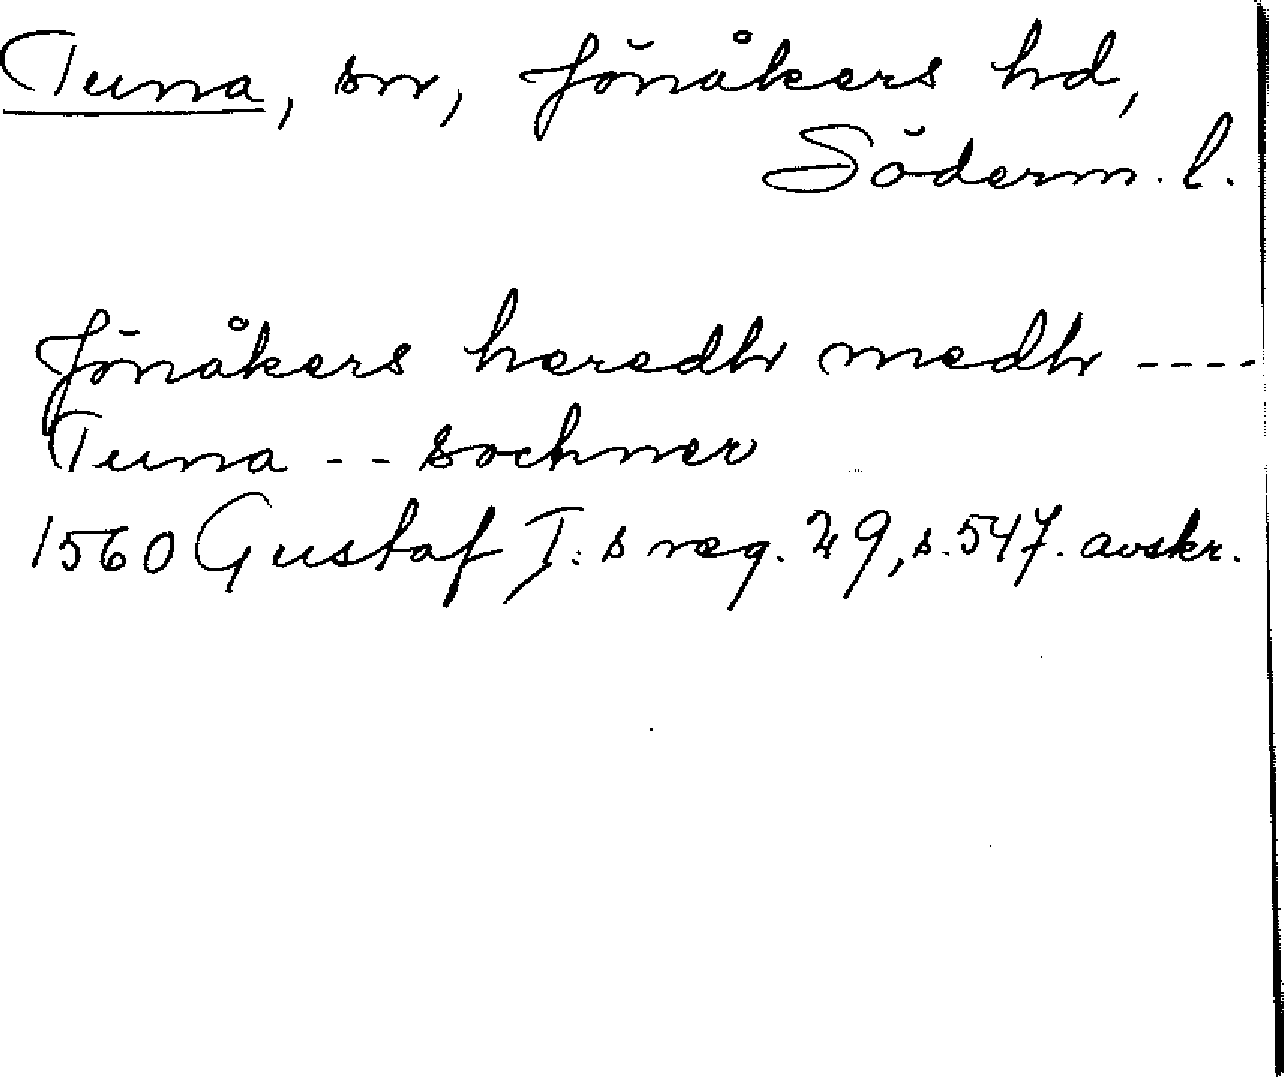 Tuna, sn, Jönåkers hd,
Söderm. l.
Jönåkers heredh medh ----
Tuna -- sochner
1560 Gustaf I:s reg. 29, s. 547. avskr.